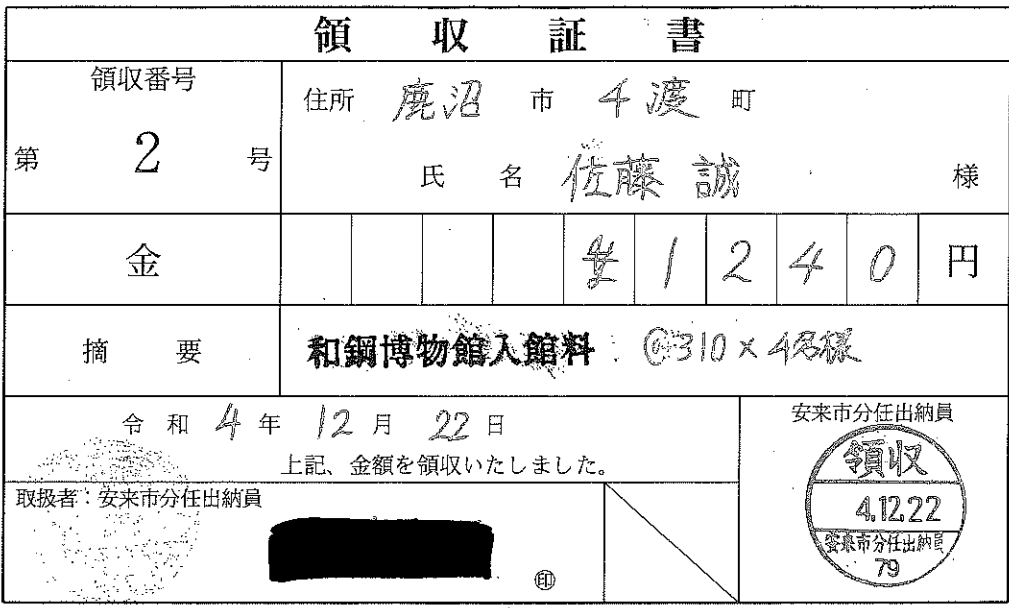 領収証書
領収番号
第 2 号
住所 鹿沼 市 千渡 町
氏名 佐藤 誠 様
金 ¥1240 円
摘要 和鋼博物館入館料 @310×4名様
令和 4年 12月 22日
上記、金額を領収いたしました。
取扱者:安来市分任出納員
㊞
安来市分任出納員
領収
4.12.22
安来市分任出納員
79